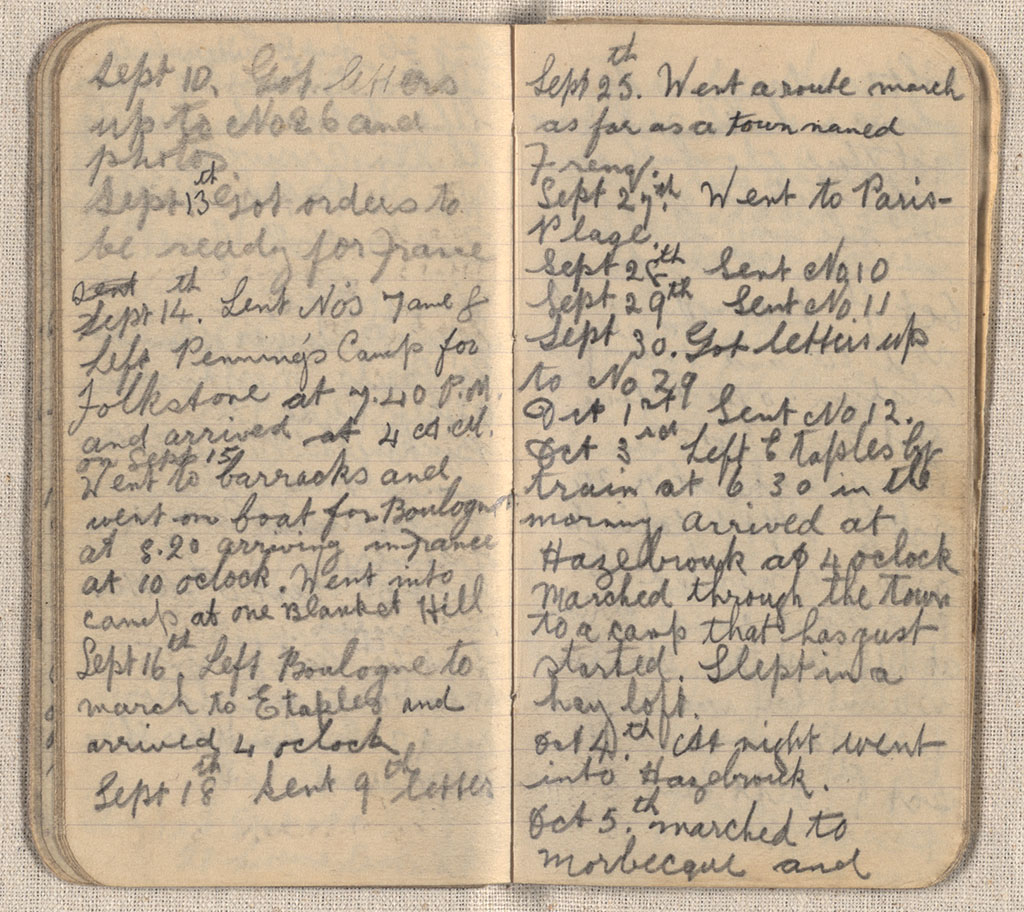 Sept 10. Got letters
up to No 26 and
photos.
Sept 13th Got orders to
be ready for France
Sent
Sept 14th. Sent Nos 7 and 8
Left Pennings Camp for
Folkstone at 7.40 P.M.
and arrived at 4 A.M.
on Sept 15
Went to barracks and
went on boat for Boulogne
at 8.20 arriving in France
at 10 oclock. Went into
camp at one Blanket Hill
Sept 16th. Left Boulogne to
march to Etaples and
arrived 4 oclock
Sept 18th Sent 9th letter
Sept 25th. Went a route march
as far as a town named
Frenq.
Sept 27th. Went to Paris-
Plage.
Sept 28th Sent No 10
Sept 29th Sent No. 11
Sept 30. Got letters up
to No 29
Oct 1st Sent No 12.
Oct 3rd Left Etaples by
train at 6 30 in the
morning arrived at
Hazebrouk at 4 oclock
Marched through the town
to a camp that has just
started. Slept in a
hay loft.
Oct 4.th At night went
into Hazebrouk.
Oct 5.th marched to
Morbecque and